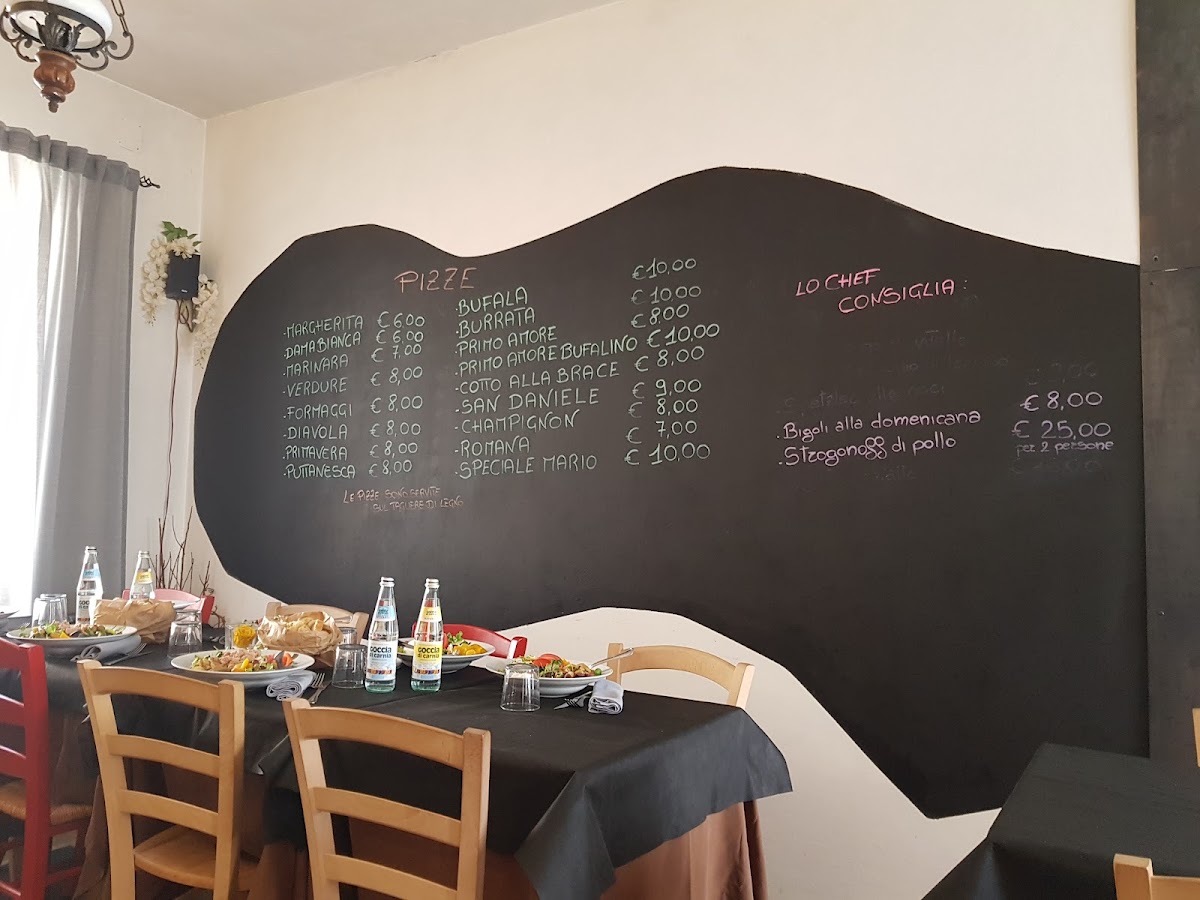 PIZZE
-MARGHERITA € 6.00
-DAMABIANCA € 6,00
-MARINARA € 7,00
-VERDURE € 8,00
-FORMAGGI € 8,00
-DIAVOLA € 8,00
-PRIMAVERA € 8,00
-PUTTANESCA € 8,00
-BUFALA € 10,00
-BURRATA € 10,00
-PRIMO AMORE € 8,00
-PRIMO AMORE BUFALINO € 10,00
-COTTO ALLA BRACE € 8,00
-SAN DANIELE € 9,00
-CHAMPIGNON € 8,00
-ROMANA € 7,00
-SPECIALE MARIO € 10,00
LE PIZZE SONO SERVITE
SUL TAGLIERE DI LEGNO
LO CHEF
CONSIGLIA:
-Bigoli alla domenicana € 8,00
-Strogonoff di pollo € 25,00
per 2 persone
goccia
di carnia
goccia
di carnia